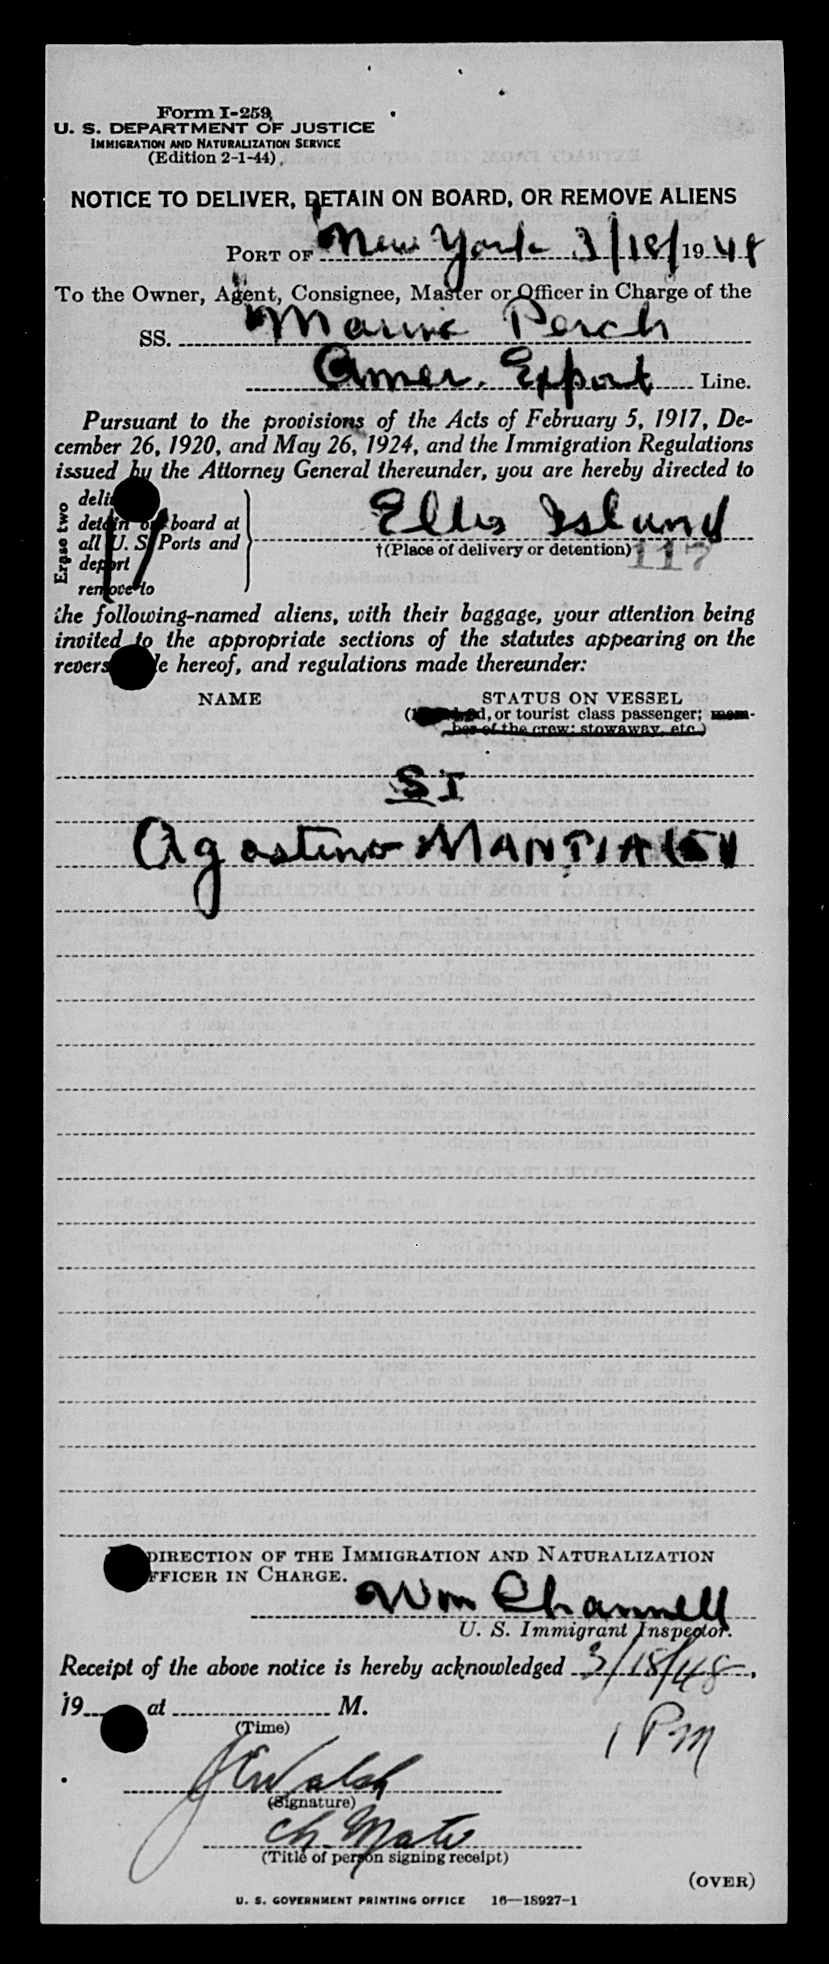 Form I-259
U. S. DEPARTMENT OF JUSTICE
IMMIGRATION AND NATURALIZATION SERVICE
(Edition 2-1-44)
NOTICE TO DELIVER, DETAIN ON BOARD, OR REMOVE ALIENS
PORT OF New York 3/18/1948
To the Owner, Agent, Consignee, Master or Officer in Charge of the
SS. Marine Perch
Amer. Export Line.
Pursuant to the provisions of the Acts of February 5, 1917, De-
cember 26, 1920, and May 26, 1924, and the Immigration Regulations
issued by the Attorney General thereunder, you are hereby directed to
Erase two
deli
detain on board at
all U. S. Ports and
deport
remove to
Ellis Island
†(Place of delivery or detention)
117
the following-named aliens, with their baggage, your attention being
invited to the appropriate sections of the statutes appearing on the
revers e hereof, and regulations made thereunder:
NAME STATUS ON VESSEL
d, or tourist class passenger; mem-
ber of the crew; stowaway, etc.)
SI
Agostino MANTIA
DIRECTION OF THE IMMIGRATION AND NATURALIZATION
FFICER IN CHARGE.
Wm Channell
U. S. Immigrant Inspector.
Receipt of the above notice is hereby acknowledged 3/18/48,
19 at M.
(Time)
1 PM
J E Walsh
(Signature)
Ch. Mate
(Title of person signing receipt)
(OVER)
U. S. GOVERNMENT PRINTING OFFICE 16—18927-1